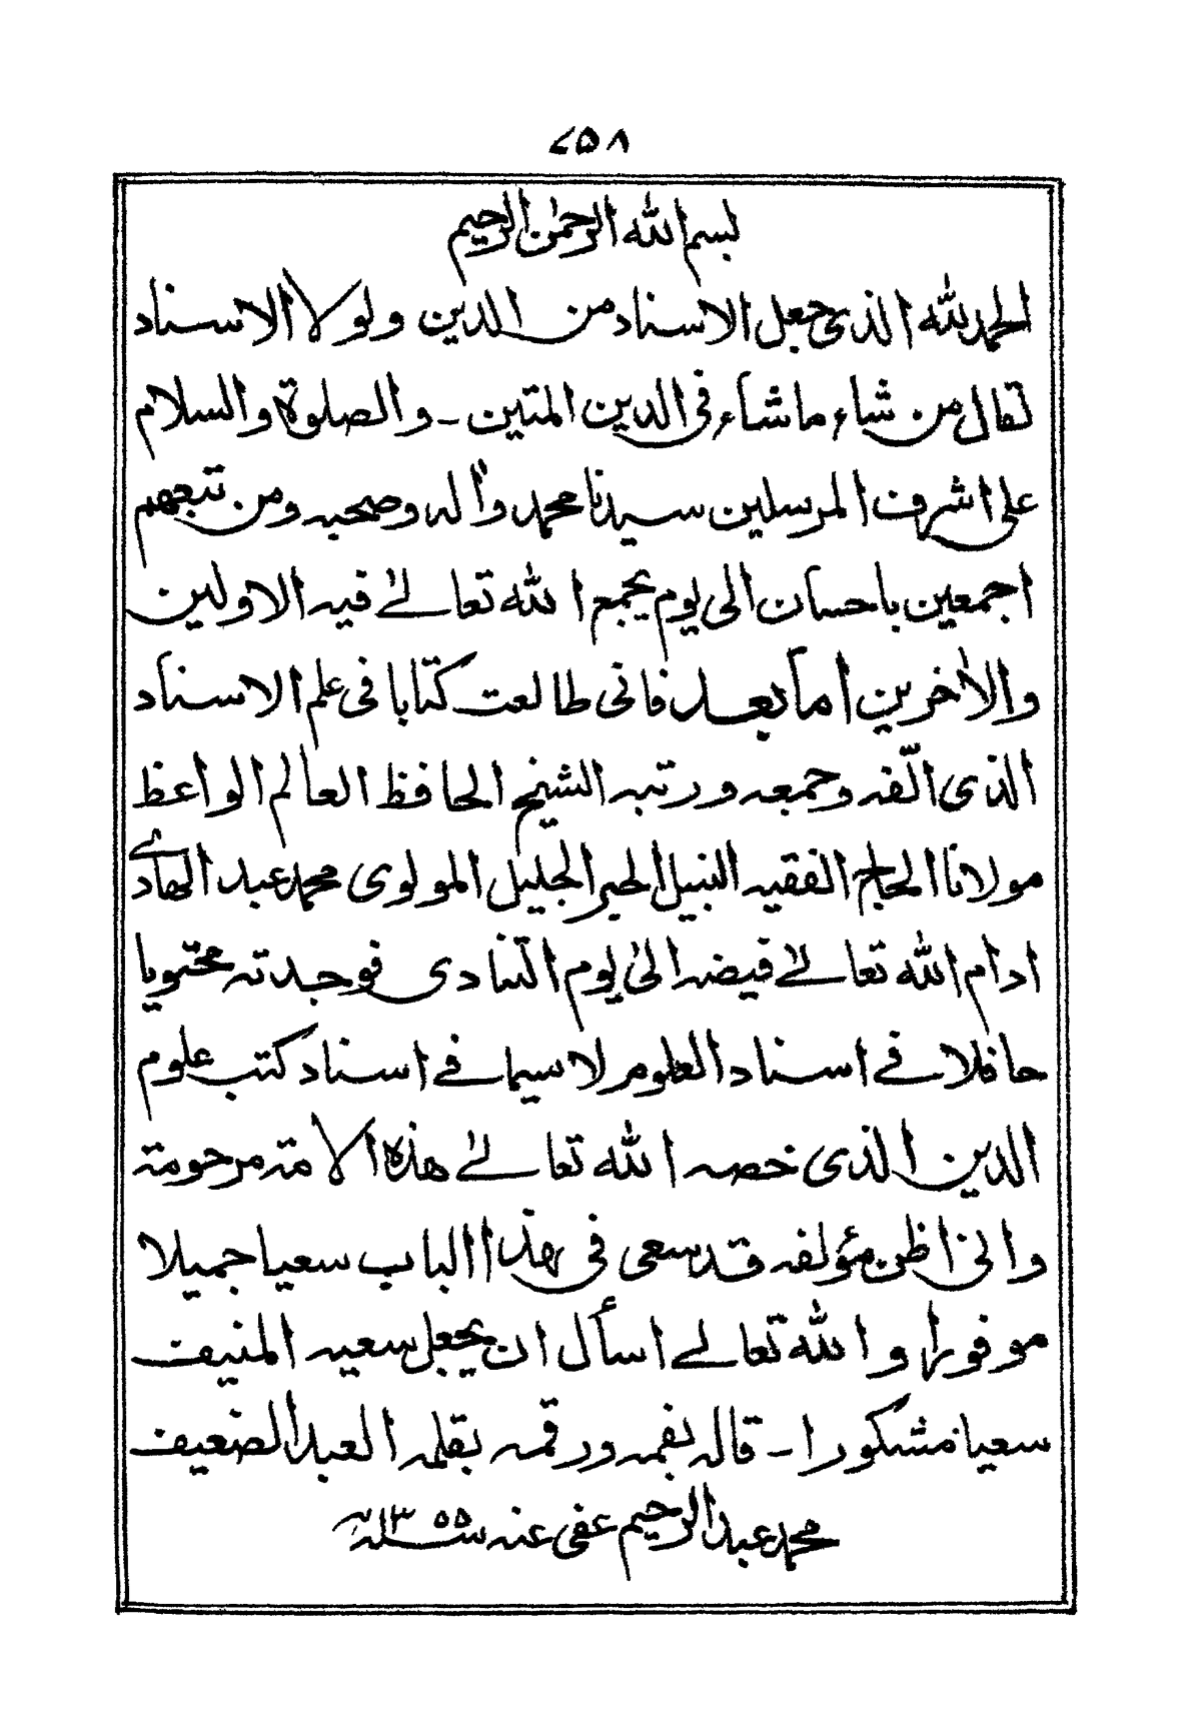 ٤٥٨
بسم الله الرحمٰن الرحيم
الحمد لله الذى جعل الاسناد من الدين ولولا الاسناد
لقال من شاء ما شآء فى الدين المتين ـ والصلوة والسلام
على اشرف المرسلين سيدنا محمد واٰله وصحبه ومن تبعهم
اجمعين باحسان الى يوم يجمع الله تعالےٰ فيه الاولين
والاٰخرين امابعد فانى طالعت كتابا فى علم الاسناد
الذى الّفه وجمعه ورتبه الشيخ الحافظ العالم الواعظ
مولانا الحاج الفقيه النبيل الحبر الجليل المولوى محمد عبد الهادے
ادام الله تعالےٰ فيضه الىٰ يوم التنادى فوجدته محتويا
حافلا فے اسناد العلوم لا سيما فے اسناد كتب علوم
الدين الذى خصه الله تعالےٰ هذه الامة مرحومة
وانى اظن مؤلفه قد سعى فى هذا الباب سعيا جميلا
موفورا و الله تعالے اسأل ان يجعل سعيه المنيف
سعيا مشكورا ـ قاله بفمه ورقمه بقلمه العبد الضعيف
محمد عبد الرحيم عفى عنه سنة ١٣٥٥ه